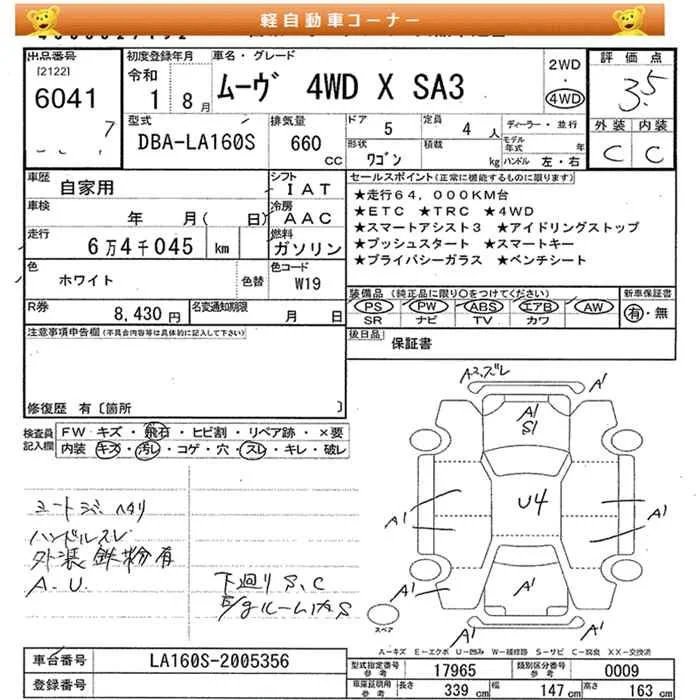 軽自動車コーナー
出品番号
[2122]
6041
7
初度登録年月
令和
1 8月
車名・グレード
ムーヴ 4WD X SA3
2WD
・
4WD
評価点
3.5
外装 内装
C C
型式
DBA-LA160S
排気量
660
CC
ドア 5
定員 4 人
形状 ワゴン
積載 kg
ディーラー・並行
モデル年式 年
ハンドル 左・右
車歴
自家用
シフト
IAT
車検
年 月( 日)
冷房
AAC
走行
6万4千045 km
燃料
ガソリン
色
ホワイト
色替
色コード
W19
R券
8,430 円
名変通知期限
月 日
セールスポイント(正常に機能するものに限ります)
★走行64,000KM台
★ETC ★TRC ★4WD
★スマートアシスト3 ★アイドリングストップ
★プッシュスタート ★スマートキー
★プライバシーガラス ★ベンチシート
装備品 (純正品に限り○をつけてください)
PS PW ABS エアB AW
SR ナビ TV カワ
新車保証書
有・無
後日品
保証書
注意事項申告欄(不具合内容等は具体的に記入して下さい)
修復歴 有〔箇所 〕
検査員記入欄
FW キズ・飛石・ヒビ割・リペア跡・×要
内装 キズ・汚レ・コゲ・穴・スレ・キレ・破レ
ハンドルスレ
外装鉄粉有
A.U.
下廻りS、C
E/gルーム内S
A2、ズレ
A1
A1
S1
A1
U4
A1
A1
A1
A1
A1
A1
スペア
A-キズ E-エクボ U-凹み W-補修跡 S-サビ C-腐食 XX-交換済
車台番号
LA160S-2005356
登録番号
型式指定番号
参考
17965
類別区分番号
参考
0009
車庫証明用
参考
長さ 339 cm
幅 147 cm
高さ 163 cm